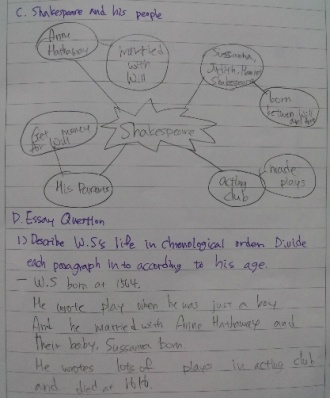 C. Shakespeare and his people
Anne
Hathaway
married
with
Will
Sussanna,
Shakespeare
born
between Will
Shakespeare
Get money
for Will
His Parents
acting
club
made
plays
D. Essay Question
1) Describe W.S's life in chronological order. Divide
each paragraph in to according to his age.
- W.S born at 1564.
He wrote play when he was just a boy
And he married with Anne Hathaway and
their baby, Sussanna born
He wrotes lots of plays in acting club
and died at 1616.